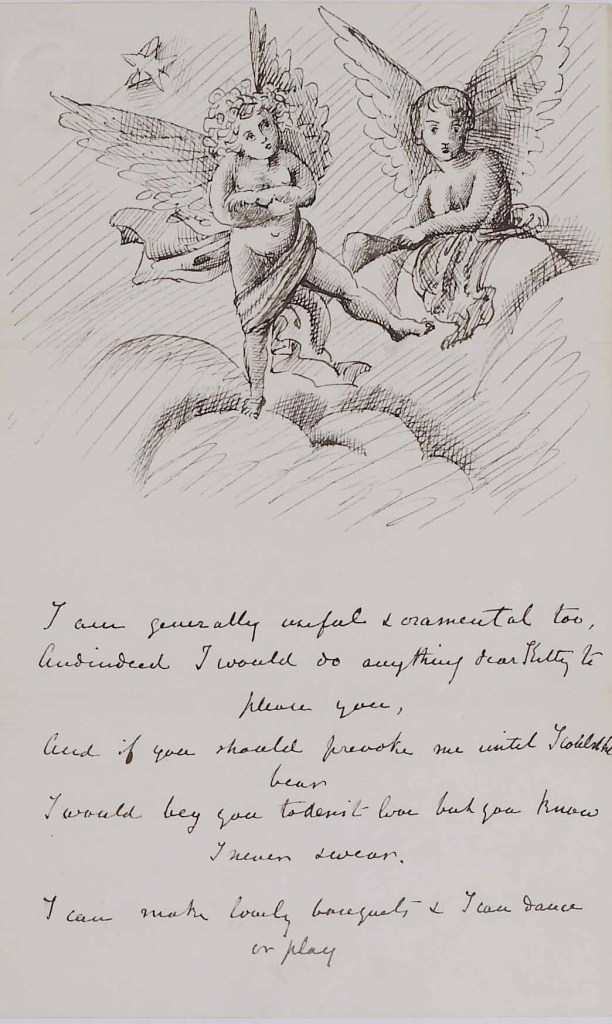 I am generally useful & oramental too,
And indeed I would do anything dear Kitty to
please you,
And if you should provoke me until I could
bear
I would beg you to desist love but you know
I never swear.
I can make lovely bouquets & I can dance
or play